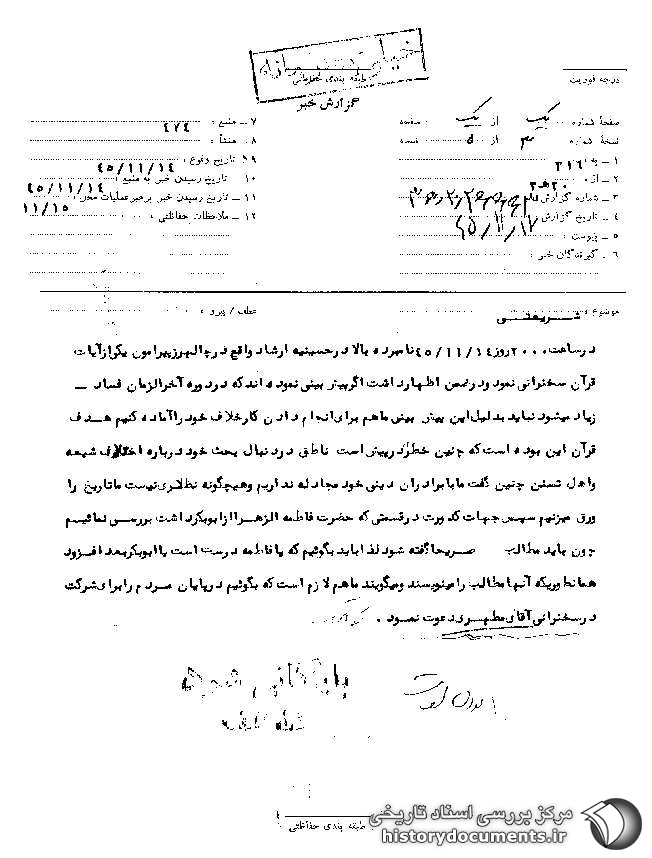 خیلی محرمانه
طبقه بندی حفاظتی
گزارش خبر
درجه فوریت
صفحهٔ شماره یک از یک صفحه
نسخهٔ شماره ۳ از ۵ نسخه
۱ ـ به ۳۱۶
۲ ـ از ۲۰ ه‍ ۳
۳ ـ شماره گزارش
۴ ـ تاریخ گزارش ۴۵/۱۱/۱۷
۵ ـ پیوست
۶ ـ گیرندگان خبر :
۷ ـ منبع : ۴۷۴
۸ ـ منشأ :
۹ ـ تاریخ وقوع : ۴۵/۱۱/۱۴
۱۰ ـ تاریخ رسیدن خبر به منبع : ۴۵/۱۱/۱۴
۱۱ ـ تاریخ رسیدن خبر برهبر عملیات محل : ۱۱/۱۵
۱۲ ـ ملاحظات حفاظتی :
موضوع : شریعتی
عطف / پیرو :
در ساعت ۲۰۰۰ روز ۴۵/۱۱/۱۴ نامبرده بالا در حسینیه ارشاد واقع در چالهرز پیرامون یکی از آیات
قرآن سخنرانی نمود و در ضمن اظهار داشت اگر پیش بینی نموده اند که در دوره آخرالزمان فساد ـ
زیاد میشود نباید بدلیل این پیش بینی ما هم برای انجام دادن کار خلاف خود را آماده کنیم هدف
قرآن این بوده است که چنین خطری در پیش است ناطق در دنبال بحث خود درباره اختلاف شیعه
و اهل تسنن چنین گفت ما با برادران دینی خود مجادله نداریم و هیچگونه نظری نیست ما تاریخ را
ورق میزنیم سپس جهات کدورت در قسمتی که حضرت فاطمه الزهرا از ابوبکر داشت بررسی نمائیم
چون باید مطالب صریحا گفته شود لذا باید بگوئیم که یا فاطمه درست است یا ابوبکر بعد افزود
همانطوریکه آنها مطالب را مینویسند و میگویند ما هم لازم است که بگوئیم در پایان مردم را برای شرکت
در سخنرانی آقای مطهری دعوت نمود .
بایگانی شود
طبقه بندی حفاظتی
مرکز بررسی اسناد تاریخی
historydocuments.ir